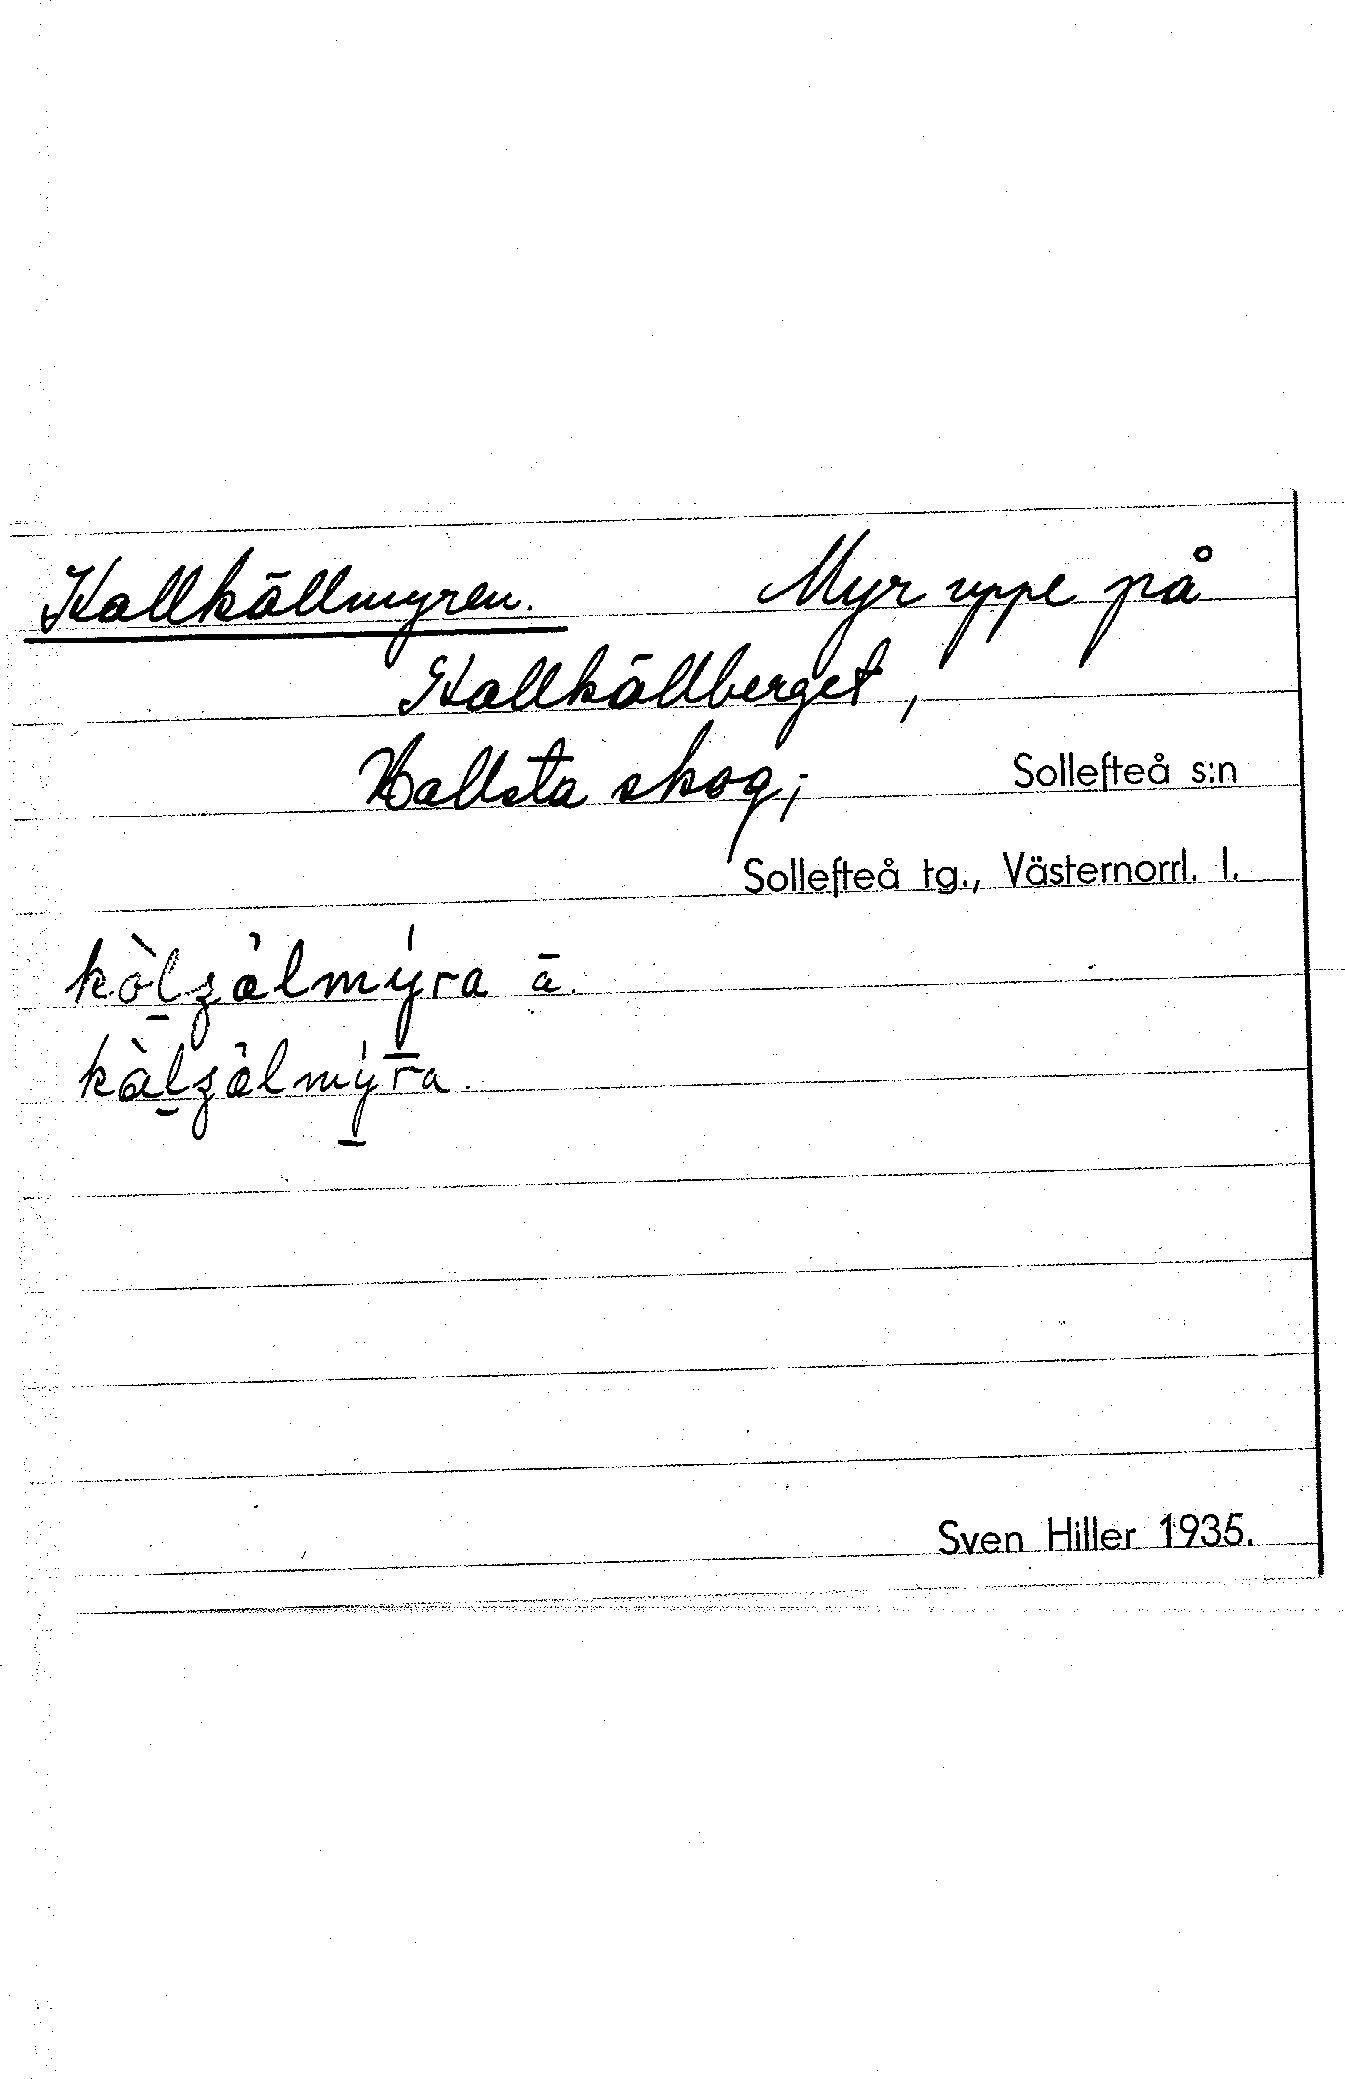 Kallkällmyren. Myr uppe på
Kallkällberget,
Hallsta skog; Sollefteå s:n
Sollefteå tg., Västernorrl. l.
Sven Hiller 1935.